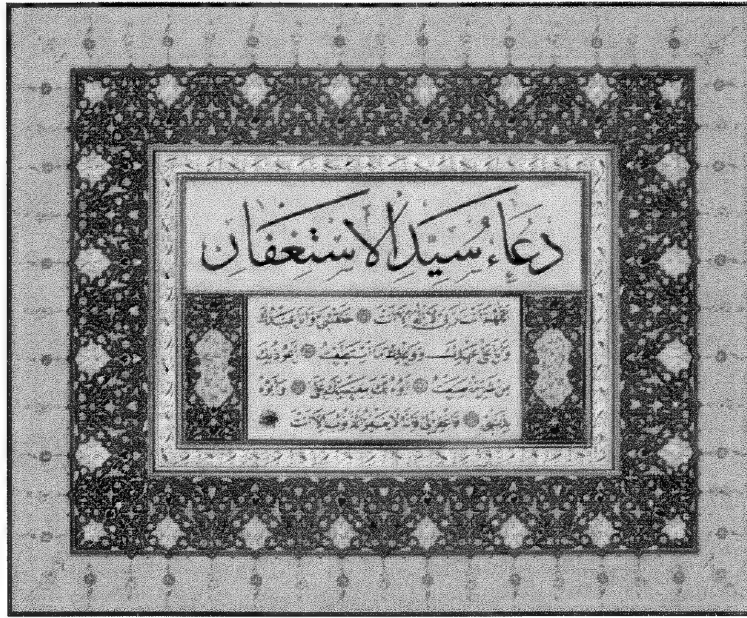 دُعَاءُ سَيِّدِ الْاِسْتِغْفَارِ
اللهم أنت ربي لا إله إلا أنت خلقتني وأنا عبدك
وأنا على عهدك ووعدك ما استطعت أعوذ بك
من شر ما صنعت أبوء لك بنعمتك علي وأبوء
بذنبي فاغفر لي فإنه لا يغفر الذنوب إلا أنت